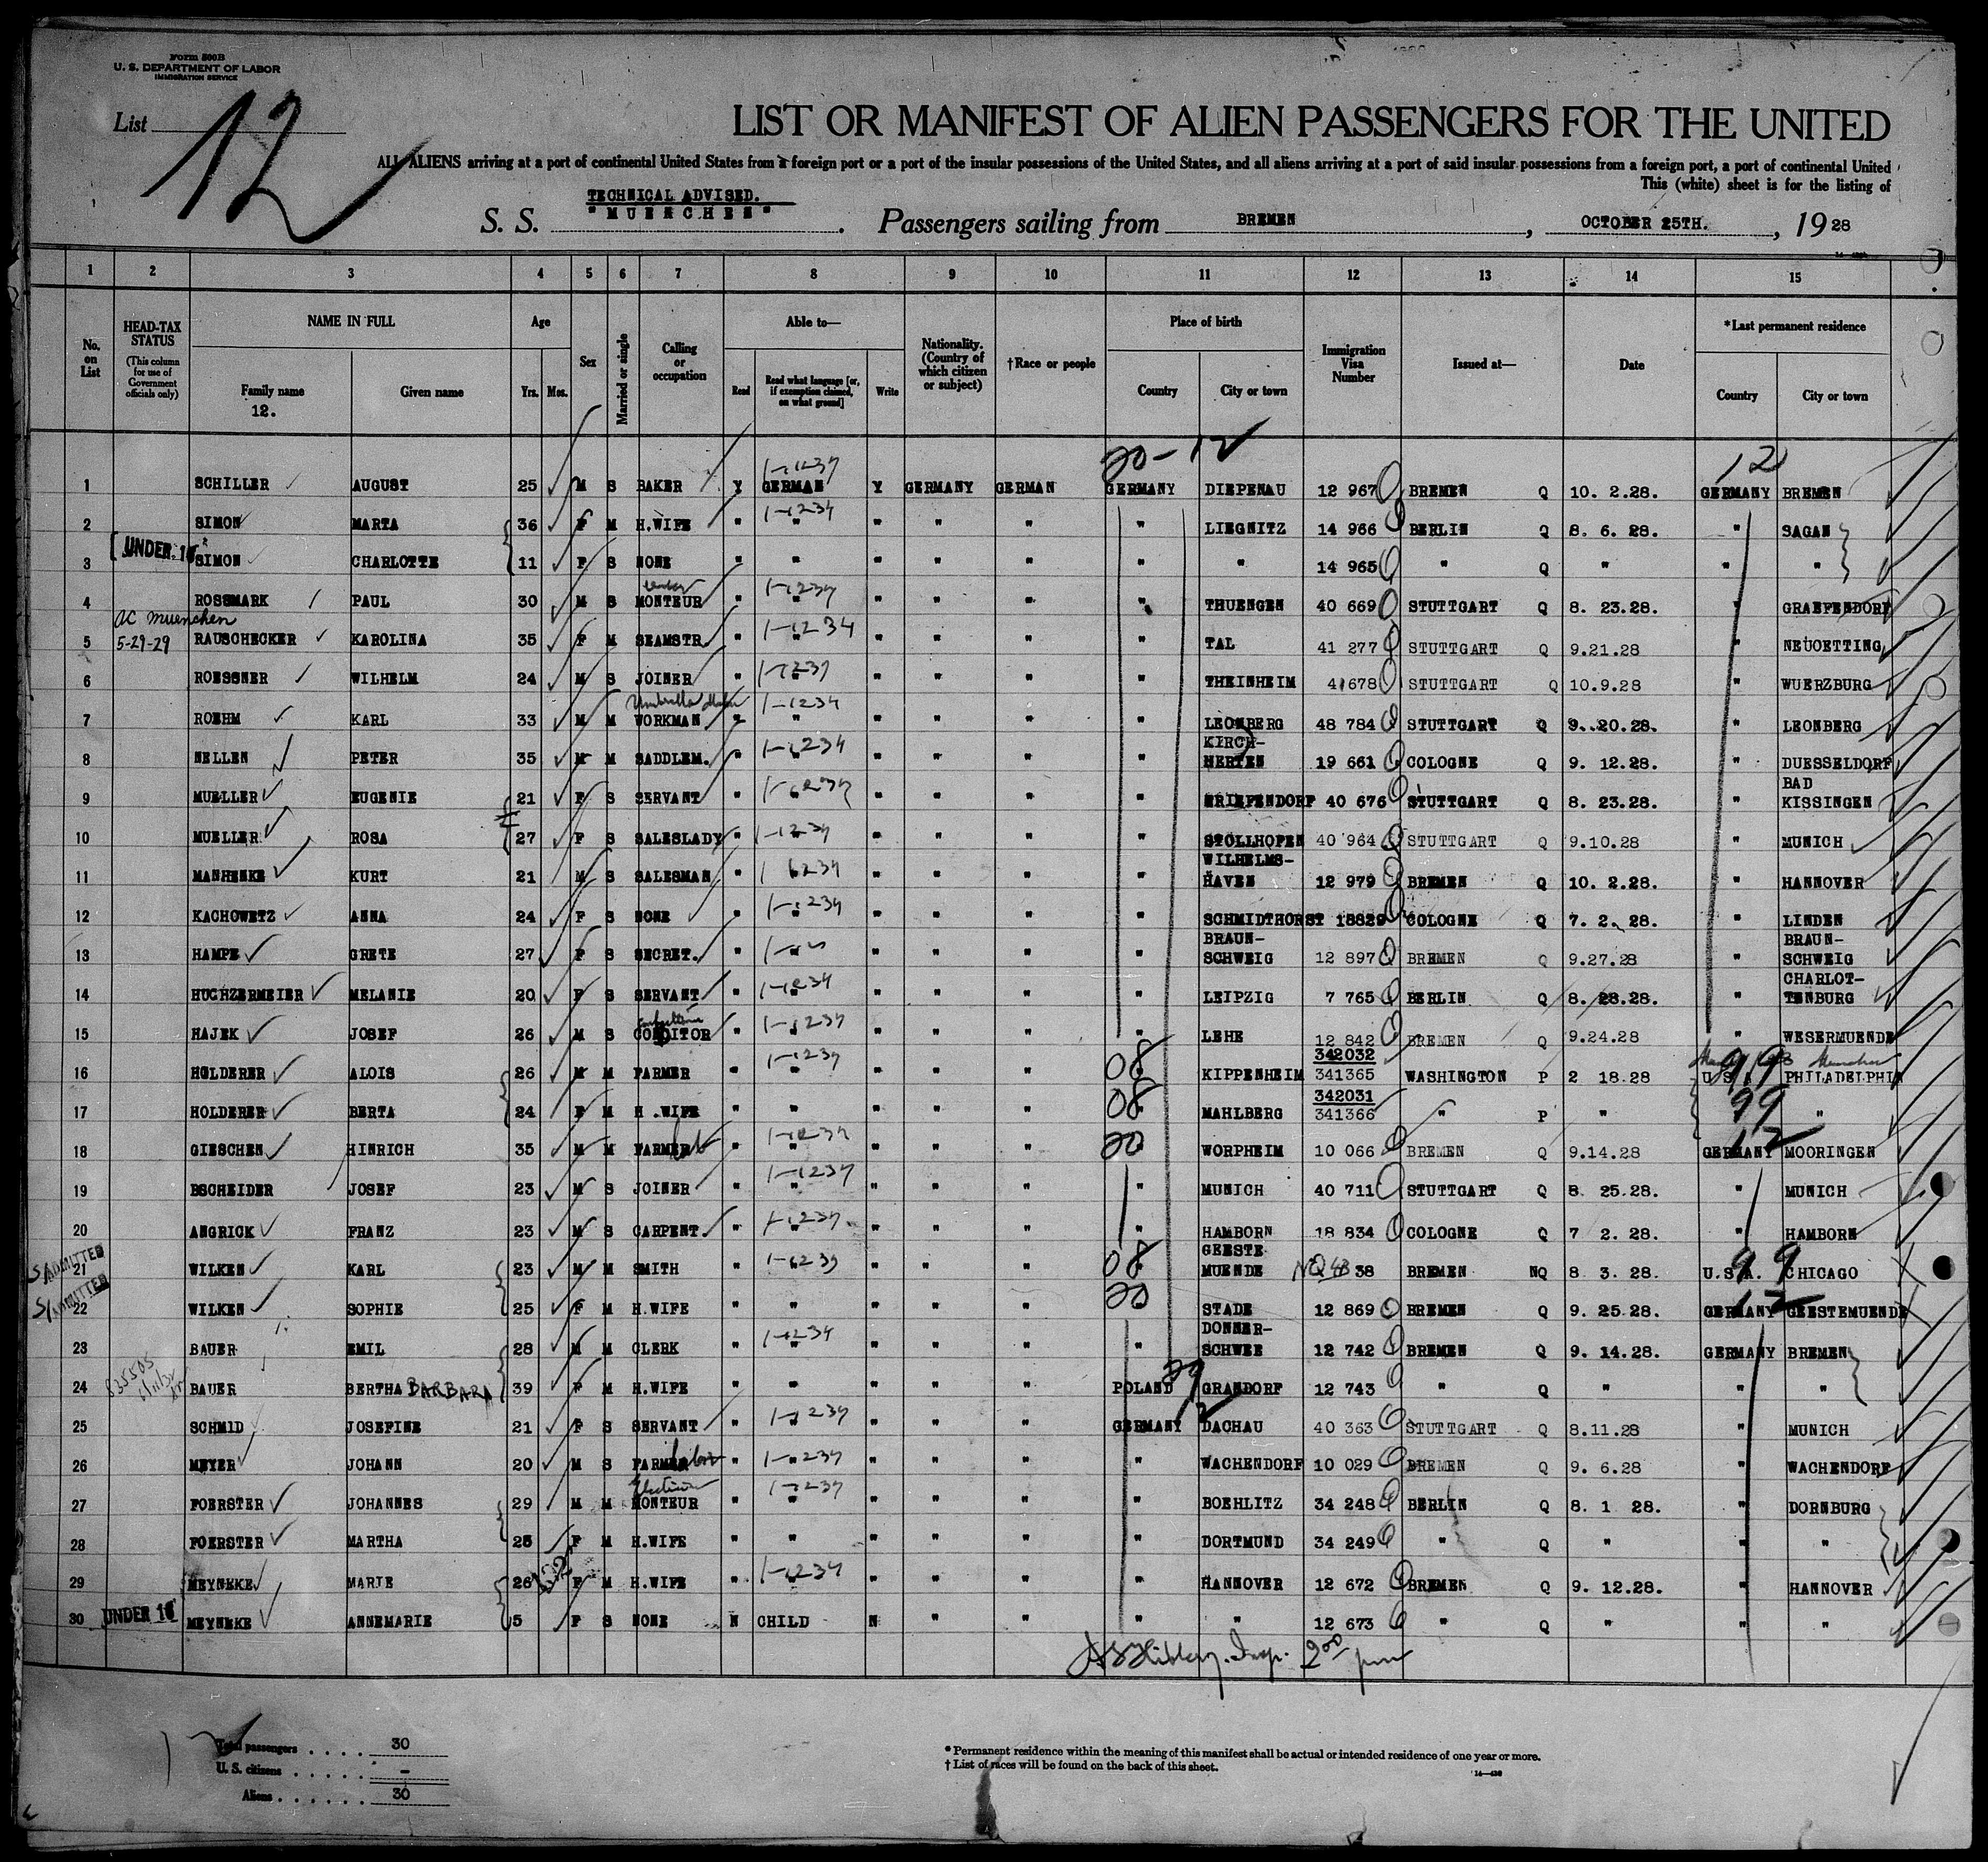 Form 500B
U. S. DEPARTMENT OF LABOR
IMMIGRATION SERVICE
List 12
LIST OR MANIFEST OF ALIEN PASSENGERS FOR THE UNITED
ALL ALIENS arriving at a port of continental United States from a foreign port or a port of the insular possessions of the United States, and all aliens arriving at a port of said insular possessions from a foreign port, a port of continental United
This (white) sheet is for the listing of
TECHNICAL ADVISED.
S. S. "MUENCHEN". Passengers sailing from BREMEN, OCTOBER 25TH., 1928
1 2 3 4 5 6 7 8 9 10 11 12 13 14 15
No. on List
HEAD-TAX STATUS (This column for use of Government officials only)
NAME IN FULL
Family name 12.
Given name
Age
Yrs. Mos.
Sex
Married or single
Calling or occupation
Able to—
Read
Read what language [or, if exemption claimed, on what ground]
Write
Nationality. (Country of which citizen or subject)
†Race or people
Place of birth
Country
City or town
Immigration Visa Number
Issued at—
Date
*Last permanent residence
Country
City or town
20-12 12
1 SCHILLER AUGUST 25 M S BAKER Y GERMAN Y GERMANY GERMAN GERMANY DIEPENAU 12 967 BREMEN Q 10. 2.28. GERMANY BREMEN
2 SIMON MARTA 36 F M H.WIFE " " " " " " LIEGNITZ 14 966 BERLIN Q 8. 6. 28. " SAGAN
3 UNDER 16 SIMON CHARLOTTE 11 F S NONE " " " " " " " 14 965 " Q " " "
4 ROSSMARK PAUL 30 M S MONTEUR " " " " " " THUENGEN 40 669 STUTTGART Q 8. 23.28. " GRAEFENDORF
AC Muenchen
5 5-29-29 RAUSCHECKER KAROLINA 35 F M SEAMSTR. " " " " " " TAL 41 277 STUTTGART Q 9.21.28 " NEUOETTING
6 ROESSNER WILHELM 24 M S JOINER " " " " " " THEINHEIM 41678 STUTTGART Q 10.9.28 " WUERZBURG
7 ROEHM KARL 33 M M Umbrella Maker WORKMAN " " " " " " LEONBERG 48 784 STUTTGART Q 9. 20.28. " LEONBERG
8 NELLEN PETER 35 M M SADDLEM. " " " " " " KIRCH-HERTEN 19 661 COLOGNE Q 9. 12.28. " DUESSELDORF
9 MUELLER EUGENIE 21 F S SERVANT " " " " " " 40 676 STUTTGART Q 8. 23.28. " BAD KISSINGEN
10 MUELLER ROSA 27 F S SALESLADY " " " " " " STOLLHOFEN 40 964 STUTTGART Q 9.10.28 " MUNICH
11 MANHENKE KURT 21 M S SALESMAN " " " " " " WILHELMS-HAVEN 12 979 BREMEN Q 10. 2.28. " HANNOVER
12 KACHOWETZ ANNA 24 F S NONE " " " " " " SCHMIDTHORST 18829 COLOGNE Q 7. 2. 28. " LINDEN
13 HAMPE GRETE 27 F S SECRET. " " " " " " BRAUN-SCHWEIG 12 897 BREMEN Q 9.27.28 " BRAUN-SCHWEIG
14 HUCHZERMEIER MELANIE 20 F S SERVANT " " " " " " LEIPZIG 7 765 BERLIN Q 8. 28.28. " CHARLOT-TENBURG
15 HAJEK JOSEF 26 M S CONDITOR " " " " " " LEHE 12 842 BREMEN Q 9.24.28 " WESERMUENDE
16 HOLDERER ALOIS 26 M M FARMER " " " " " 08 KIPPENHEIM 342032 341365 WASHINGTON P 2 18.28 U.S. 99 PHILADELPHIA
17 HOLDERER BERTA 24 F M H.WIFE " " " " " 08 MAHLBERG 342031 341366 " P " 99 "
18 GIESCHEN HINRICH 35 M M FARMER " " " " " 20 WORPHEIM 10 066 BREMEN Q 9.14.28 12 GERMANY MOORINGEN
19 BSCHEIDER JOSEF 23 M S JOINER " " " " " " MUNICH 40 711 STUTTGART Q 8 25.28. " MUNICH
20 ANGRICK FRANZ 23 M S CARPENT. " " " " " " HAMBORN 18 834 COLOGNE Q 7 2. 28. " HAMBORN
21 S/ADMITTED WILKEN KARL 23 M M SMITH " " " " " 08 GEESTE-MUENDE 38 BREMEN NQ 8 3. 28. U.S.A. 99 CHICAGO
22 S/ADMITTED WILKEN SOPHIE 25 F M H.WIFE " " " " " 20 STADE 12 869 BREMEN Q 9. 25.28. GERMANY 12 GEESTEMUENDE
23 BAUER EMIL 28 M M CLERK " " " " " " DONNER-SCHWEE 12 742 BREMEN Q 9. 14.28. GERMANY BREMEN
24 BAUER BERTHA BARBARA 39 F M H.WIFE " " " " " POLAND 29 GRANDORF 12 743 " Q " " "
25 SCHMID JOSEFINE 21 F S SERVANT " " " " " GERMANY 12 DACHAU 40 363 STUTTGART Q 8.11.28 " MUNICH
26 MEYER JOHANN 20 M S FARMER " " " " " " WACHENDORF 10 029 BREMEN Q 9. 6.28 " WACHENDORF
27 FOERSTER JOHANNES 29 M M MONTEUR " " " " " " BOEHLITZ 34 248 BERLIN Q 8. 1 28. " DORNBURG
28 FOERSTER MARTHA 25 F M H.WIFE " " " " " " DORTMUND 34 249 " Q " " "
29 MEYNEKE MARIE 26 F M H.WIFE " " " " " " HANNOVER 12 672 BREMEN Q 9. 12.28. " HANNOVER
30 UNDER 16 MEYNEKE ANNEMARIE 5 F S NONE N CHILD N " " " " 12 673 " Q " " "
Insp. 200 pm
Total passengers . . . . . 30
U. S. citizens . . . . . . –
Aliens . . . . . . 30
* Permanent residence within the meaning of this manifest shall be actual or intended residence of one year or more.
† List of races will be found on the back of this sheet.